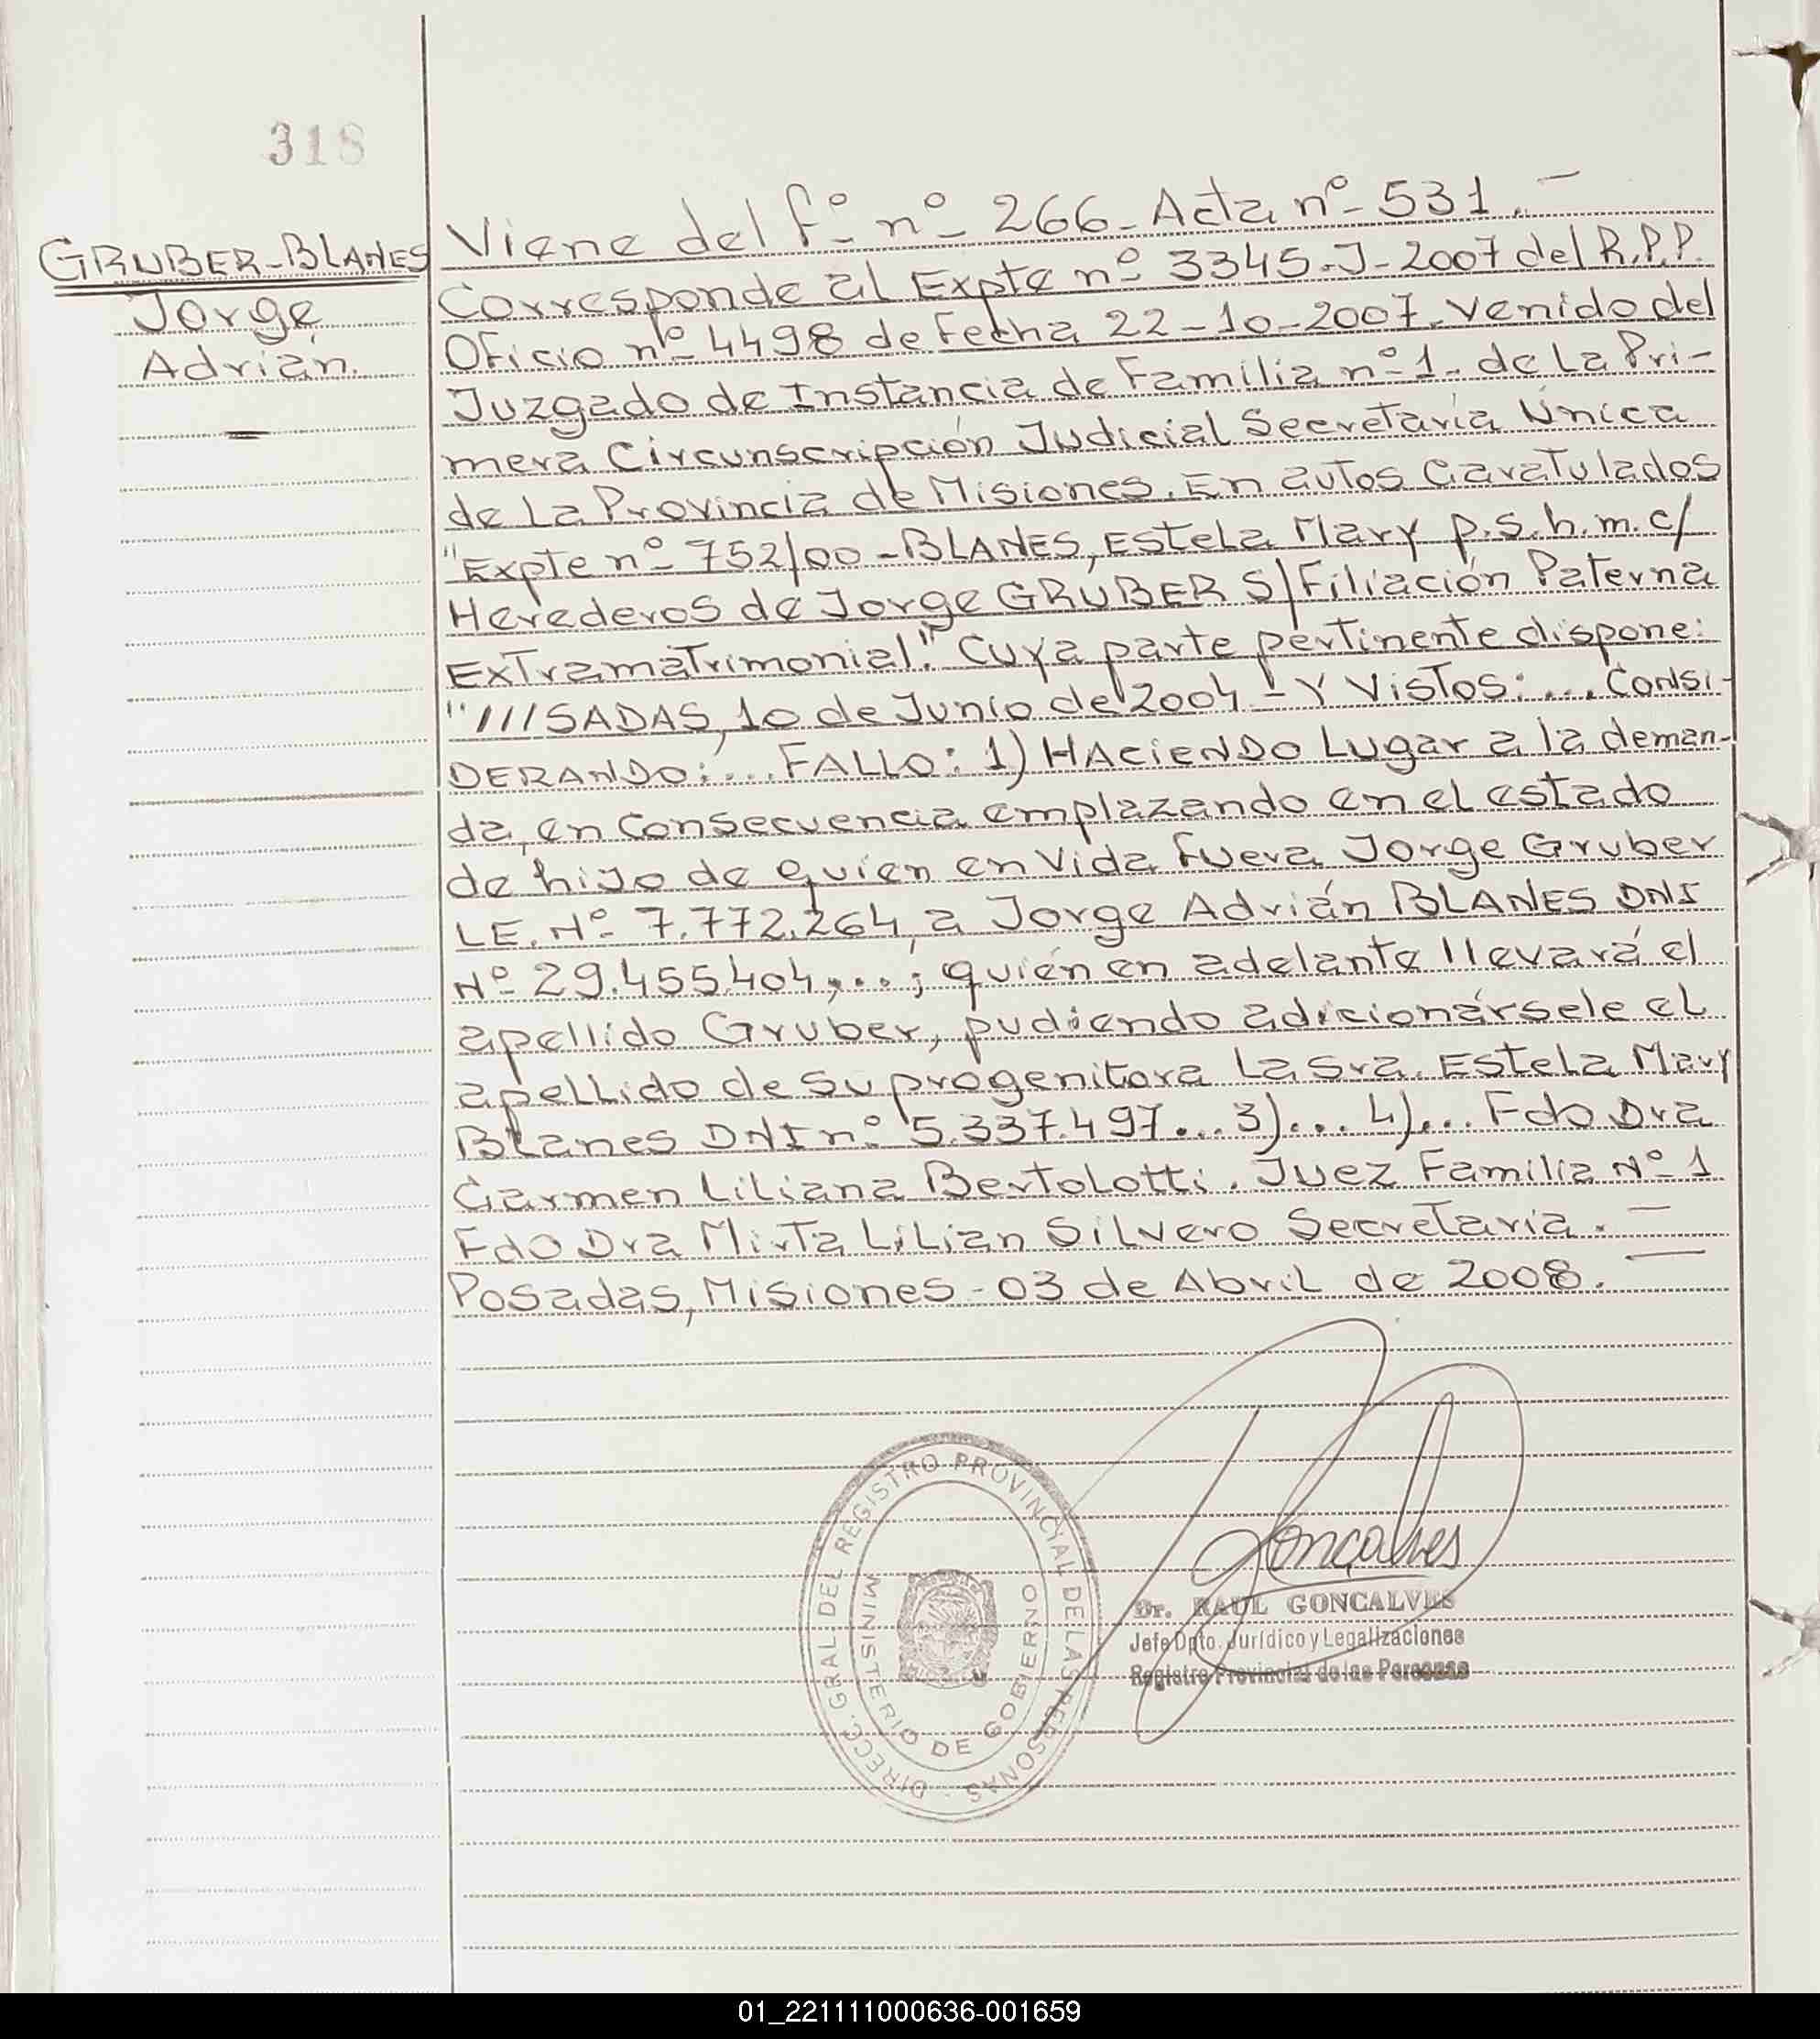 318
GRUBER-BLANES
Jorge
Adrián.
Viene del fº nº 266-Acta nº 531.-
Corresponde al Expte nº 3345-J-2007 del R.P.P.
Oficio nº 4498 de Fecha 22-10-2007. Venido del
Juzgado de Instancia de Familia nº 1. de La Pri-
mera Circunscripción Judicial Secretaría Única
de La Provincia de Misiones. En autos Caratulados
"Expte nº 752/00-BLANES, Estela Mary p.s.h.m. c/
Herederos de Jorge GRUBER S/Filiación Paterna
Extramatrimonial". Cuya parte pertinente dispone:
"///SADAS, 10 de Junio de 2004 - Y Vistos:... CONSI-
DERANDO:... FALLO: 1) HACIENDO Lugar a la deman-
da, en Consecuencia emplazando en el estado
de hijo de quien en Vida fuera Jorge Gruber
LE. Nº 7.772.264, a Jorge Adrián BLANES DNI
Nº 29.455.404,...; quién en adelante llevará el
apellido Gruber, pudiendo adicionársele el
apellido de su progenitora La Sra. Estela Mary
Blanes DNI nº 5.337.497... 3)... 4)... Fdo Dra
Carmen Liliana Bertolotti. Juez Familia Nº 1
Fdo Dra Mirta Lilian Silvero Secretaria. -
Posadas, Misiones - 03 de Abril de 2008. -
Goncalves
Dr. RAUL GONCALVES
Jefe Dpto. Jurídico y Legalizaciones
Registro Provincial de las Personas
DIRECC. GRAL. DEL REGISTRO PROVINCIAL DE LAS PERSONAS
MINISTERIO DE GOBIERNO
01_221111000636-001659